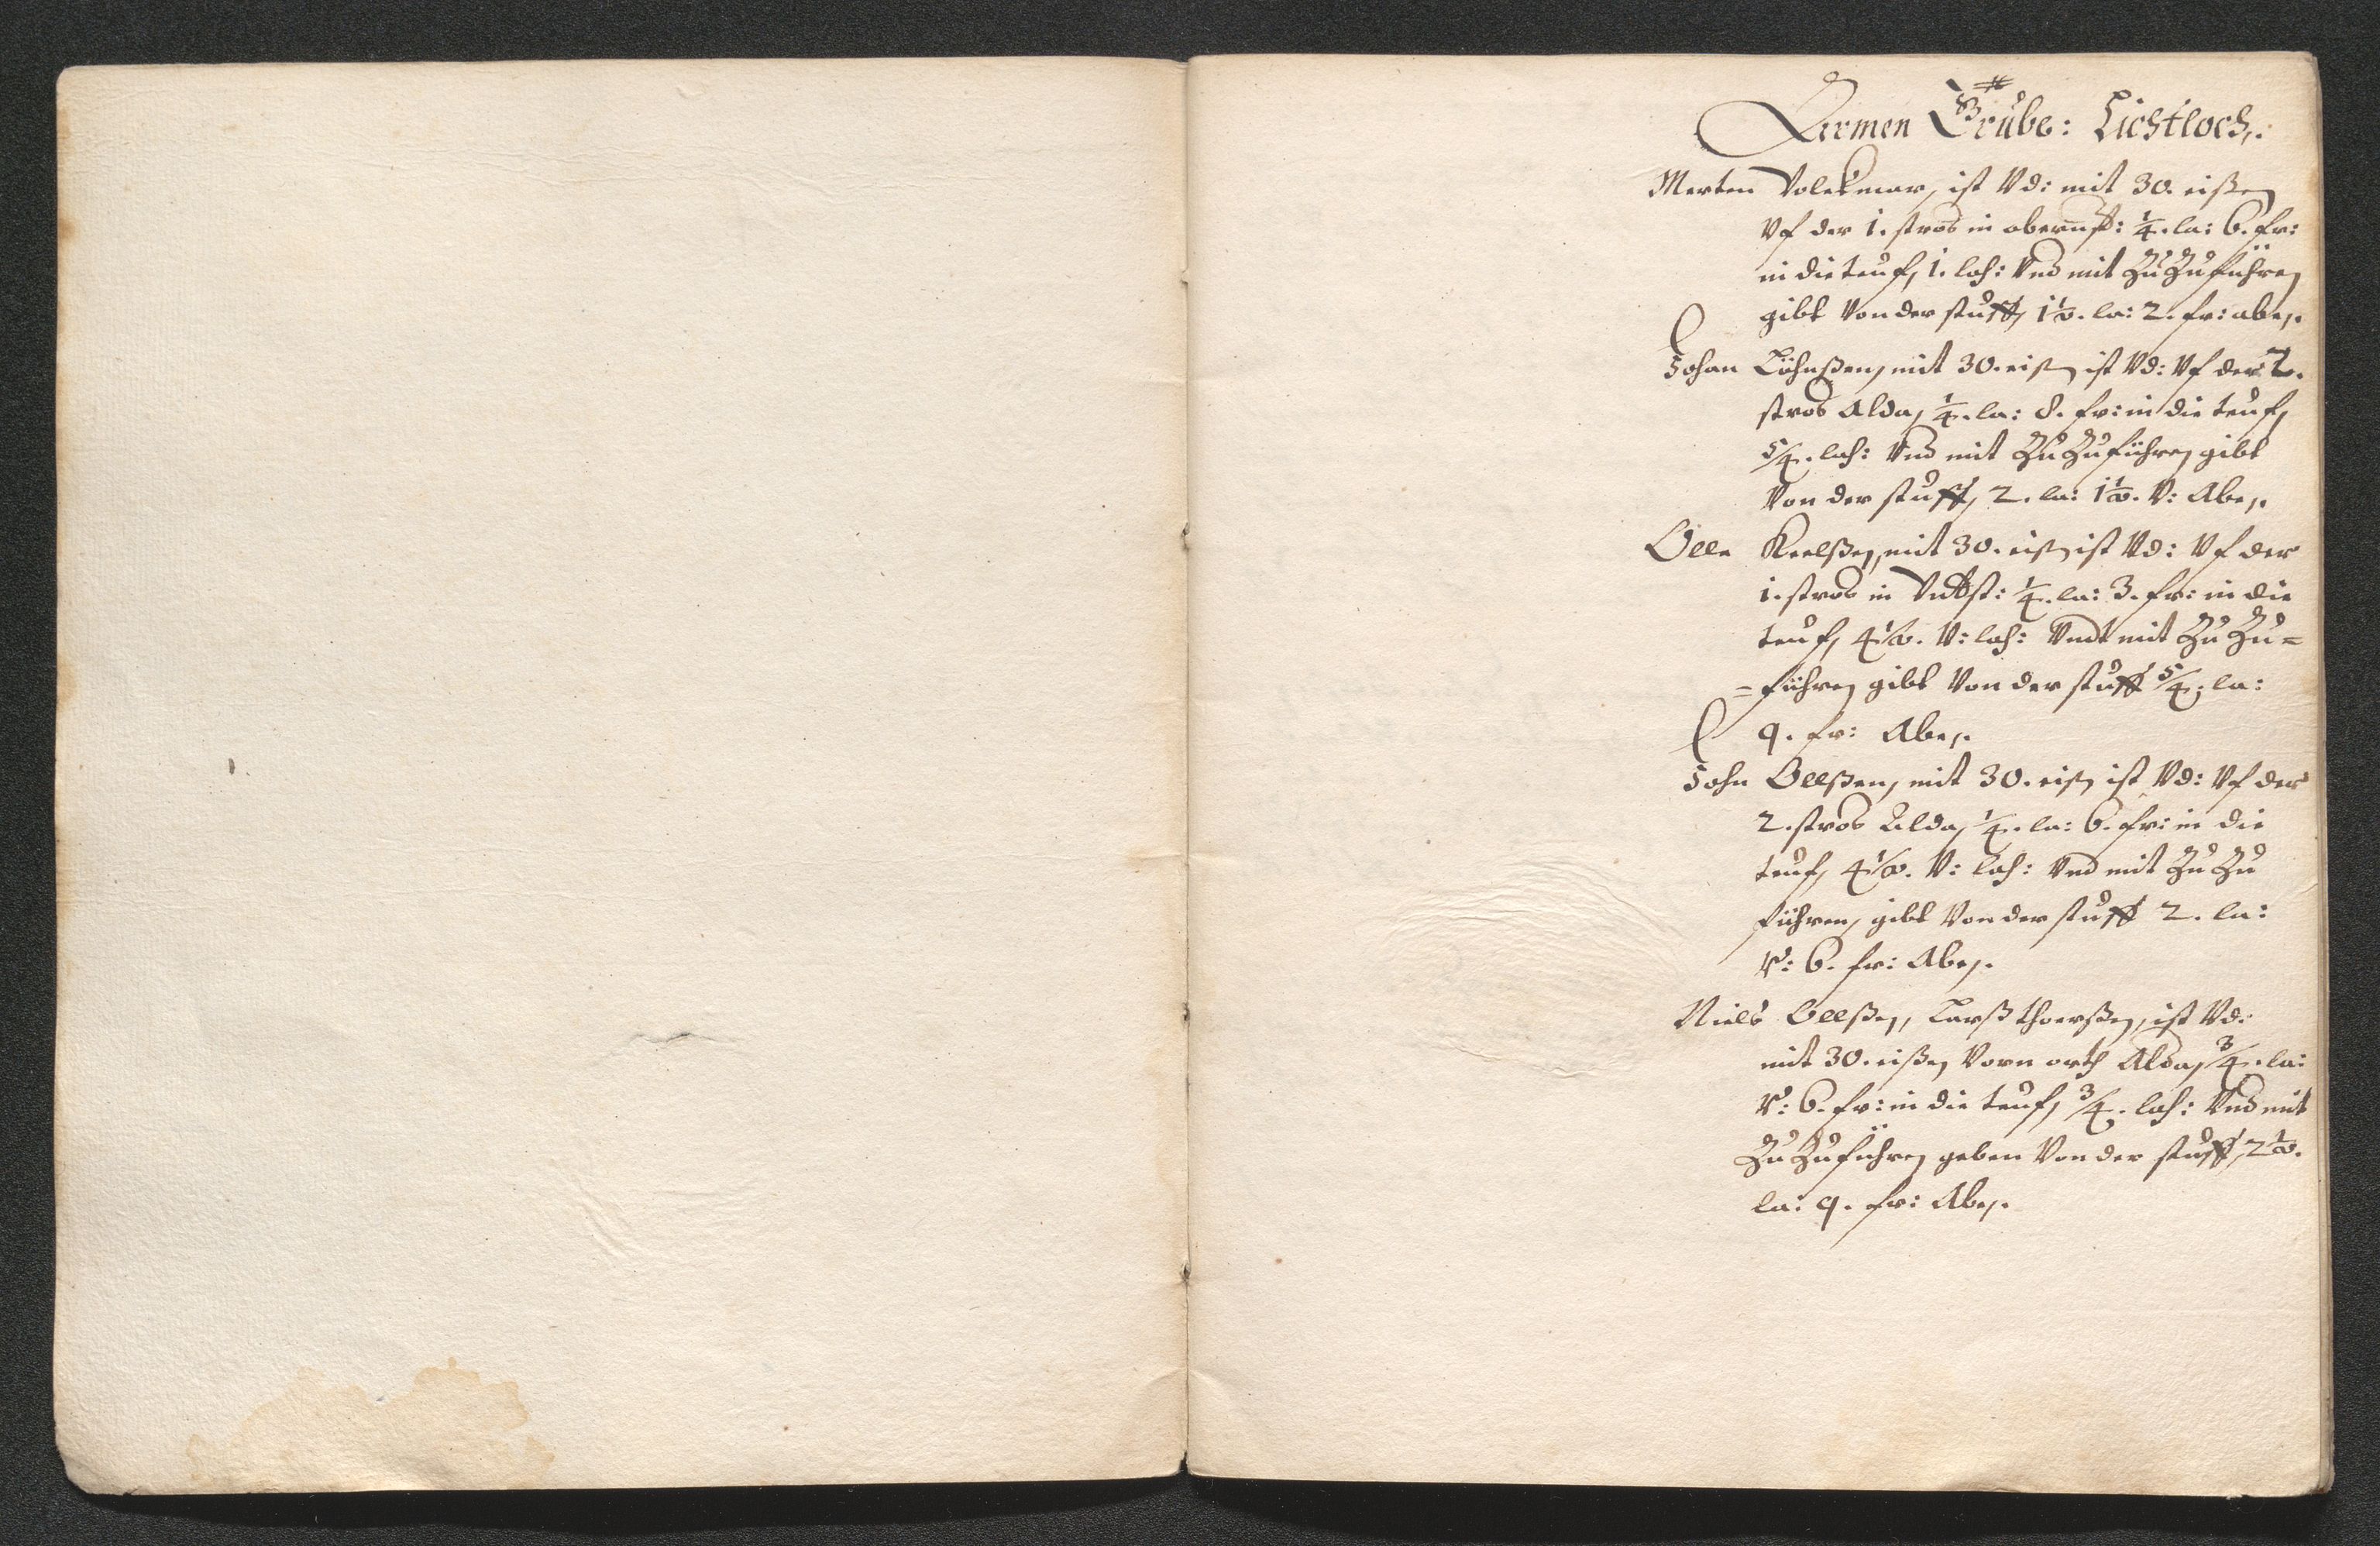 Armen Grube: Lichtloch.
Merten Volckmar, ist Vd: mit 30. eißen
Vf der 1. stros in obernst: 1/4. la: 6. fr:
in die teuf, 1. lach: Vnd mit Zu Zuführen
gibt Von der stuff, 1 1/2. la: 2. fr: abe,.
Johan Löhnßen, mit 30. eißen ist Vd: Vf der 2.
stros Alda, 1/4. la: 8. fr: in die teuf,
5/4. lach: Vnd mit Zu Zuführen gibt
Von der stuff, 2. la: 1 1/2. V: Abe,.
Olle Keelßen, mit 30. eißen ist Vd: Vf der
1. stros in 1/4. la: 3. fr: in die
teuf, 4 1/2. V: lach: Vndt mit Zu Zu=
=führen gibt Von der stuff 5/4. la:
9. fr: Abe,.
John Ollßen, mit 30. eißen ist Vd: Vf der
2. stros Alda, 1/4. la: 6. fr: in die
teuf, 4 1/2. V: lach: Vnd mit Zu Zu
führen, gibt Von der stuff 2. la:
V: 6. fr: Abe,.
Niels Ollßen, Larß thorßen, ist Vd:
mit 30. eißen Vorn orth Alda, 3/4. la:
V: 6. fr: in die teuf, 3/4. lach: Vnd mit
Zu Zuführen geben Von der stuff, 2 1/2.
la: 9. fr: Abe,.